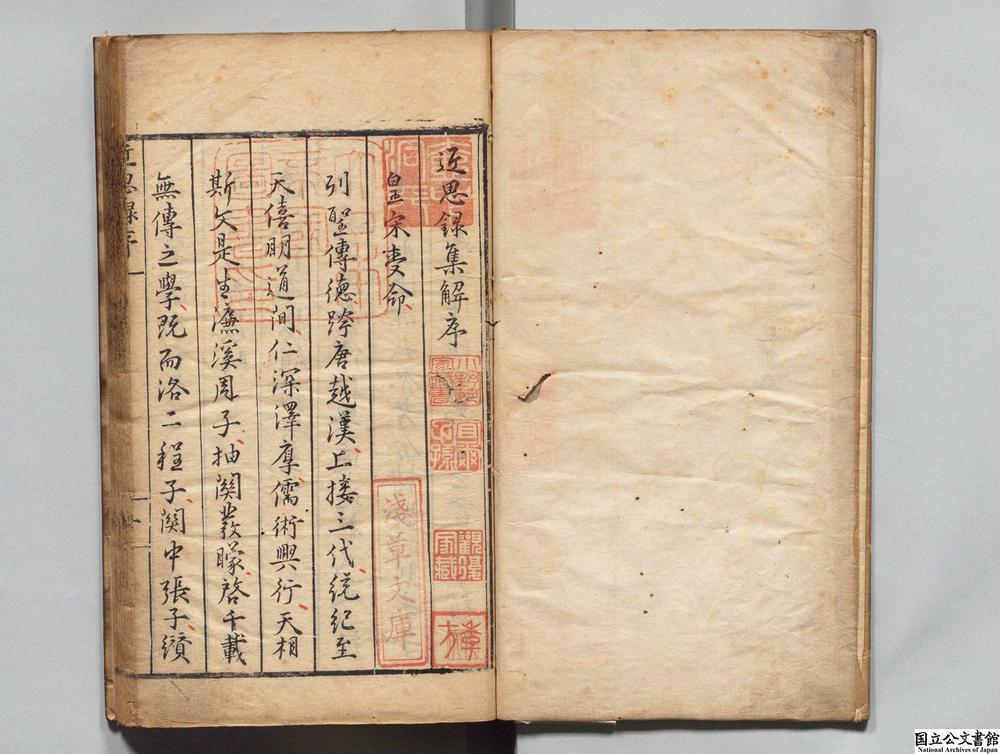 近思録集解序
皇宋受命
列聖傳德跨唐越漢上接三代統紀至
天僖明道間仁深澤厚儒術興行天相
斯文是生濂溪周子抽關發矇啓千載
無傳之學既而洛二程子關中張子纉
近思録序
淺草文庫
国立公文書館
National Archives of Japan